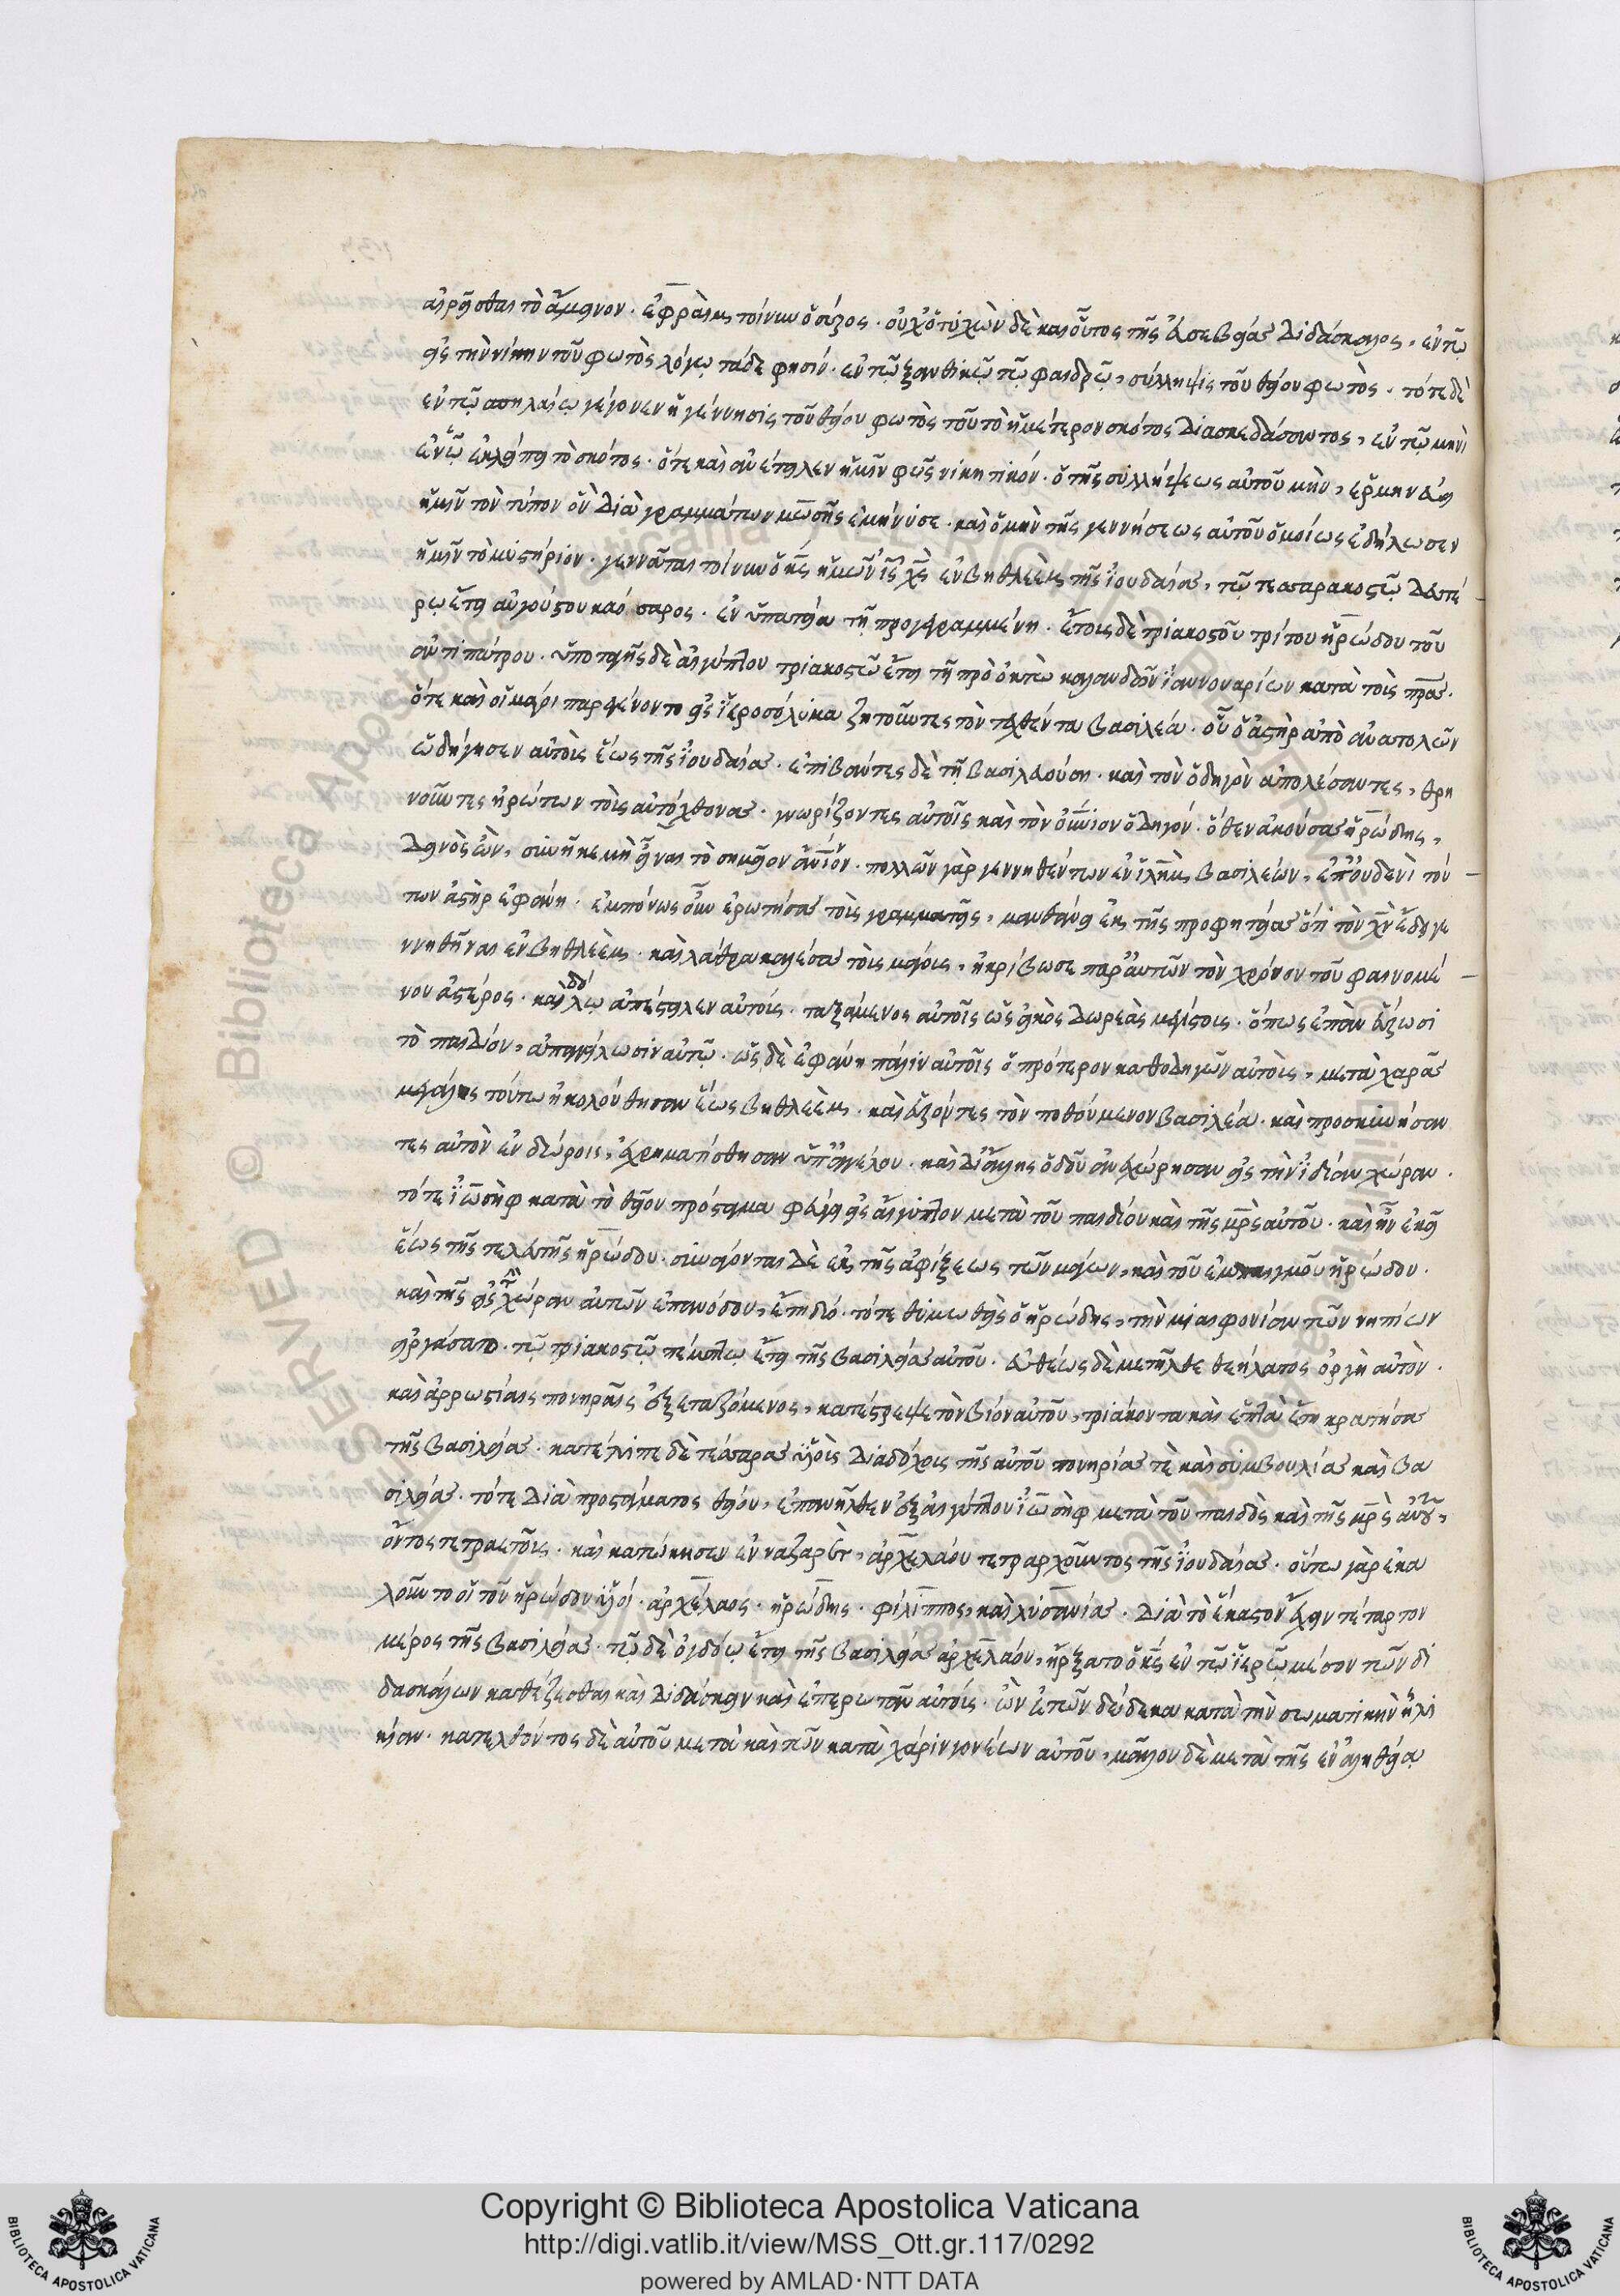 αἱρεῖσθαι τὸ ἄμεινον. ἐφραὶμ τοίνυν ὁ σύρος. οὐχ ὁ τυχὼν δὲ καὶ οὗτος τῆς εὐσεβείας διδάσκαλος, ἐν τῷ
εἰς τὴν νίκην τοῦ φωτὸς λόγῳ τάδε φησίν. ἐν τῷ ξανθικῷ τῷ φαιδρῷ, σύλληψις τοῦ θείου φωτὸς. τότε δὲ
ἐν τῷ σπηλαίῳ γέγονεν ἡ γέννησις τοῦ θείου φωτὸς τοῦ τὸ ἡμέτερον σκότος διασκεδάσαντος, ἐν τῷ μηνὶ
ἐν ᾧ ἐκλείπει τὸ σκότος. ὅτε καὶ ἀνέτειλεν ἡμῖν φῶς νικητικόν. ὁ τῆς συλλήψεως αὐτοῦ μὴν, ἑρμηνεύει
ἡμῖν τὸν τύπον ὃν διὰ γραμμάτων μωσῆς ἐμήνυσε. καὶ ὁ μὴν τῆς γεννήσεως αὐτοῦ ὁμοίως ἐδήλωσεν
ἡμῖν τὸ μυστήριον. γεννᾶται τοίνυν ὁ κς ἡμῶν ις χς ἐν βηθλεὲμ τῆς ἰουδαίας, τῷ τεσσαρακοστῷ δευτέ-
ρῳ ἔτει αὐγούστου καίσαρος. ἐν ὑπατείᾳ τῇ προγεγραμμένῃ. ἔτους δὲ τριακοστοῦ τρίτου ἡρώδου τοῦ
ἀντιπάτρου. ὑποταγῆς δὲ αἰγύπτου τριακοστῷ ἔτει τῇ πρὸ ὀκτὼ καλανδῶν ἰαννουαρίων κατὰ τοὺς πρας.
ὅτε καὶ οἱ μάγοι παρεγένοντο εἰς ἱεροσόλυμα ζητοῦντες τὸν τεχθέντα βασιλέα. οὗ ὁ ἀστὴρ ἀπὸ ἀνατολῶν
ὡδήγησεν αὐτοὺς ἕως τῆς ἰουδαίας. ἐπιβάντες δὲ τῇ βασιλευούσῃ. καὶ τὸν ὁδηγὸν ἀπολέσαντες, θρη
νοῦντες ἠρώτων τοὺς αὐτόχθονας. γνωρίζοντες αὐτοῖς καὶ τὸν οὐνιον ὁδηγόν. ὅθεν ἀκούσας ἡρώδης,
δεινὸς ὢν, συνῆκε μὴ εἶναι τὸ σημεῖον ἀνινον. πολλῶν γὰρ γεννηθέντων ἐν ἰλημ βασιλέων, ἐπ' οὐδενὶ τού-
των ἀστὴρ ἐφάνη. ἐμπόνως οὖν ἐρωτήσας τοὺς γραμματεῖς, μανθάνει ἐκ τῆς προφητείας ὅτι τὸν χν ἔδει γε
ννηθῆναι ἐν βηθλεὲμ. καὶ λάθρα καλέσας τοὺς μάγους, ἠκρίβωσε παρ' αὐτῶν τὸν χρόνον τοῦ φαινομέ-
νου ἀστέρος. καὶ ἀπέστειλεν αὐτούς. ταξάμενος αὐτοῖς ὡς εἰκὸς δωρεὰς μεγίστας. ὅπως ἐπὰν εὕρωσι
τὸ παιδίον, ἀπαγγείλωσιν αὐτῷ. ὡς δὲ ἐφάνη πάλιν αὐτοῖς ὁ πρότερον καθοδηγῶν αὐτοὺς, μετὰ χαρᾶς
μεγάλης τούτῳ ἠκολούθησαν ἕως βηθλεὲμ. καὶ εὑρόντες τὸν ποθούμενον βασιλέα. καὶ προσκυνήσαν
τες αὐτὸν ἐν δώροις, ἐχρηματίσθησαν ὑπ' ἀγγέλου. καὶ δι' ἄλλης ὁδοῦ ἀνεχώρησαν εἰς τὴν ἰδίαν χώραν.
τότε ἰωσὴφ κατὰ τὸ θεῖον πρόσταγμα φεύγει εἰς αἴγυπτον μετὰ τοῦ παιδίου καὶ τῆς μρς αὐτοῦ. καὶ ἦν ἐκεῖ
ἕως τῆς τελευτῆς ἡρώδου. συνάγονται δὲ ἐκ τῆς ἀφίξεως τῶν μάγων, καὶ τοῦ ἐμπαιγμοῦ ἡρώδου.
καὶ τῆς εἰς τὴν χώραν αὐτῶν ἐπανόδου, ἔτη δύο. τότε θυμωθεὶς ὁ ἡρώδης, τὴν μιαιφονίαν τῶν νηπίων
εἰργάσατο. τῷ τριακοστῷ πέμπτῳ ἔτει τῆς βασιλείας αὐτοῦ. εὐθέως δὲ μετῆλθε θεήλατος ὀργὴ αὐτὸν.
καὶ ἀρρωστίαις πονηραῖς ἐξεταζόμενος, κατέστρεψε τὸν βίον αὐτοῦ, τριάκοντα καὶ ἑπτὰ ἔτη κρατήσας
τῆς βασιλείας. κατέλιπε δὲ τέσσαρας υἱοὺς διαδόχους τῆς αὐτοῦ πονηρίας τὲ καὶ συμβουλίας καὶ βα
σιλείας. τότε διὰ προστάγματος θείου, ἐπανῆλθεν ἐξ αἰγύπτου ἰωσὴφ μετὰ τοῦ παιδὸς καὶ τῆς μρς αὐτοῦ,
ὄντος τετραετοῦς. καὶ κατῴκησεν ἐν ναζαρέτ, ἀρχελάου τετραρχοῦντος τῆς ἰουδαίας. οὕτω γὰρ ἐκα
λοῦντο οἱ τοῦ ἡρώδου υἱοί. ἀρχέλαος. ἡρώδης. φίλιππος, καὶ λυσανίας. διὰ τὸ ἕκαστον ἔχειν τέταρτον
μέρος τῆς βασιλείας. τῷ δὲ ὀγδόῳ ἔτει τῆς βασιλείας ἀρχελάου, ἤρξατο ὁ κς ἐν τῷ ἱερῷ μέσον τῶν δι
δασκάλων καθέζεσθαι καὶ διδάσκειν καὶ ἐπερωτᾶν αὐτούς. ὢν ἐτῶν δώδεκα κατὰ τὴν σωματικὴν ἡλι
κίαν. κατελθόντος δὲ αὐτοῦ μετὰ καὶ τῶν κατὰ χάριν γονέων αὐτοῦ, μᾶλλον δὲ μετὰ τῆς ἐν ἀληθείᾳ
Copyright © Biblioteca Apostolica Vaticana
http://digi.vatlib.it/view/MSS_Ott.gr.117/0292
powered by AMLAD·NTT DATA
BIBLIOTECA APOSTOLICA VATICANA
BIBLIOTECA APOSTOLICA VATICANA